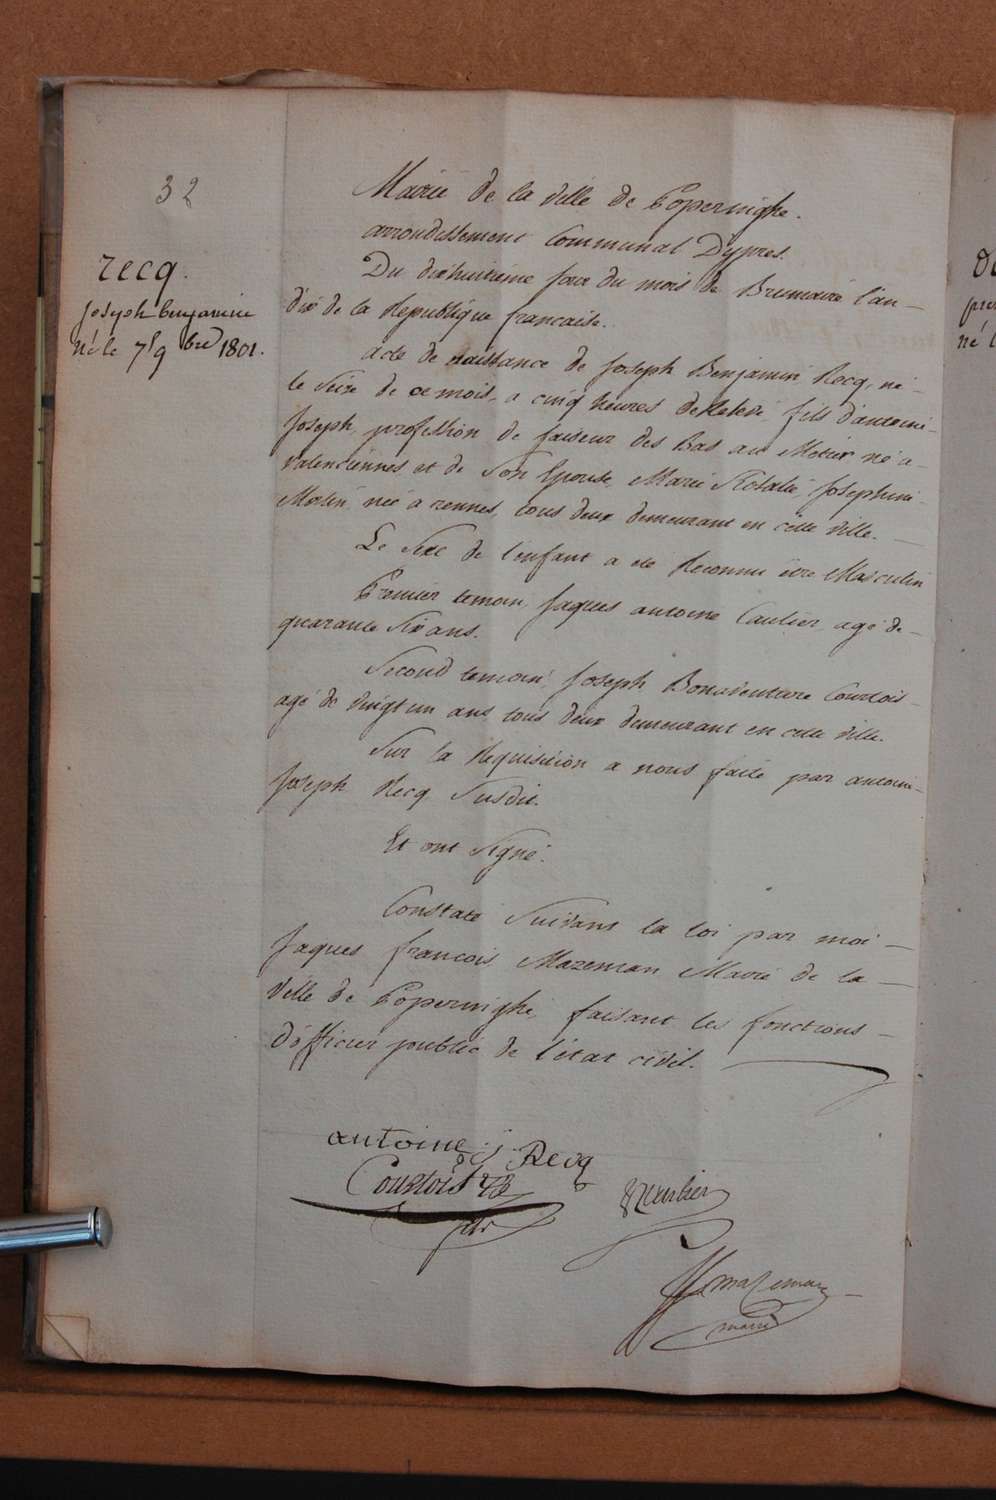 32
recq.
Joseph benjamin
né le 7 9bre 1801.
Mairie de la Ville de Poperinghe.
arrondissement Communal Dypres.
Du dixhuitieme jour du mois de Brumaire l'an
dix de la Republique francaise.
acte de naissance de Joseph Benjamin Recq, né
le Seize de ce mois, a cinq heures de Relevé, fils d'antoine
Joseph, profession de faiseur des Bas au Metier né a
valenciennes et de Son Epouse, Marie Josephine
née a rennes, tous deux demeurant en cette ville.
Le Sexe de l'enfant a eté Reconnu être Masculin
Premier temoin, Jaques antoine Cautier, agé de
quarante Six ans.
Second temoin, Joseph Bonaventure Courtois
agé de vingt un ans tous deux demeurant en cette ville.
Sur la Requisition a nous faite par antoine
Joseph Recq Susdit.
Et ont Signé.
Constaté Suivant la loi par moi
Jaques francois Mazeman Maire de la
Ville de Poperinghe, faisant les fonctions
D'officier public de l'état civil.
antoine j Recq
Courtois
fils
Mazeman
maire